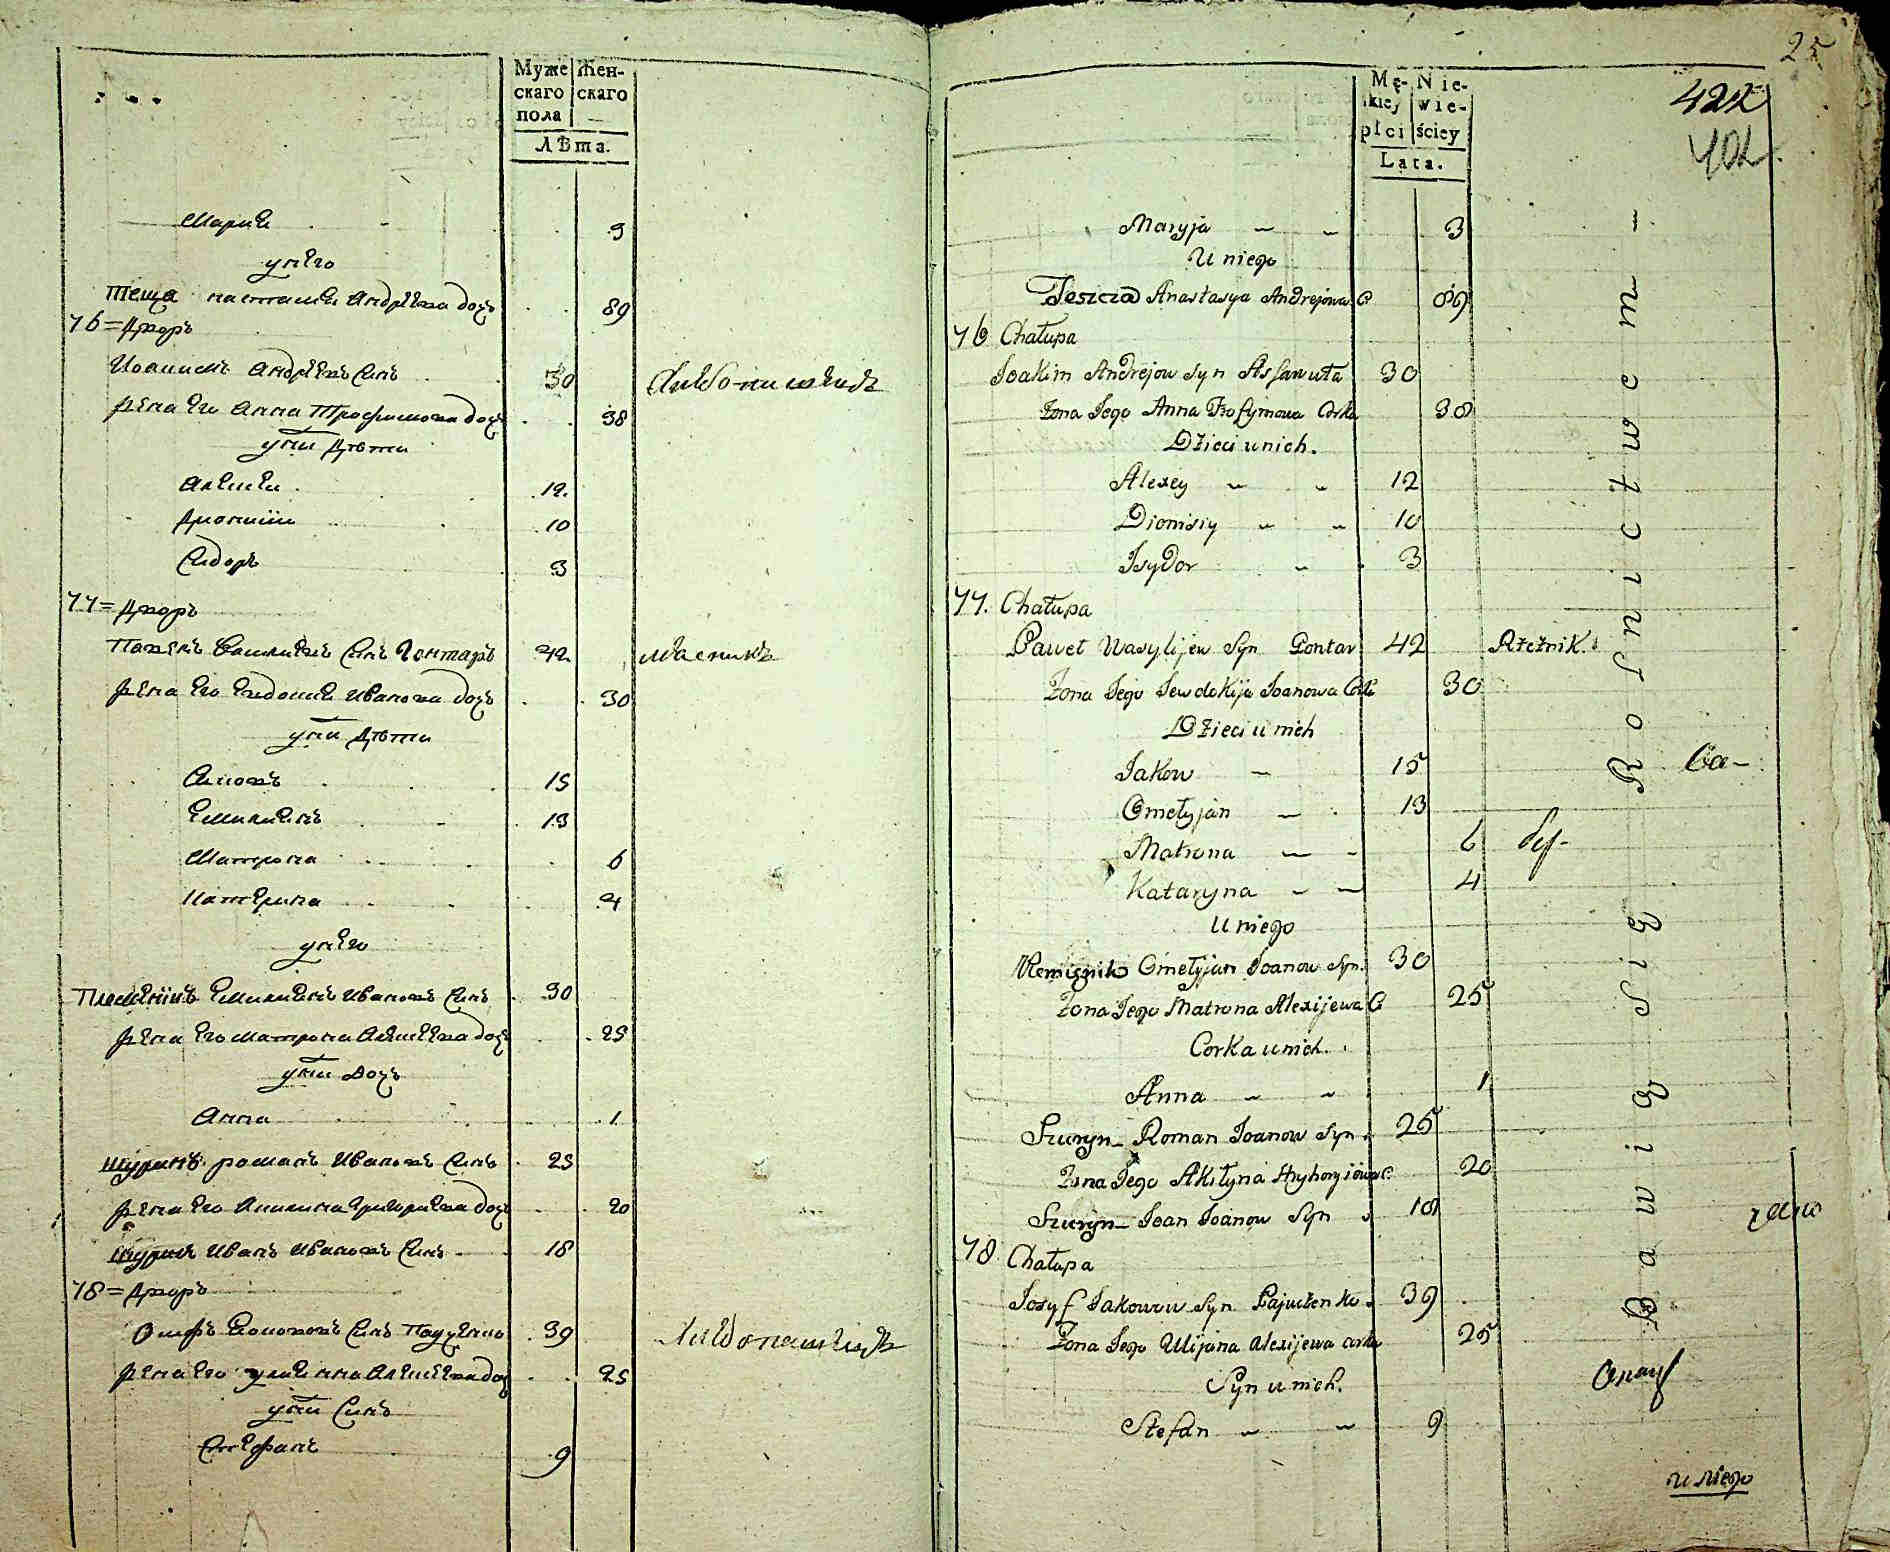 Муже Жен-
скаго скаго
пола —
Лѣта.
Мария 3
у него
теща настасия андрѣева дочь 89
76 = Дворъ
Иоакимъ андрѣевъ синъ 30 хлѣбопашецъ
жена его анна трофимова дочь 38
у них дѣти
алексѣй 12
дионисий 10
сидоръ 3
77 = Дворъ
Павелъ василиевъ синъ Гонтаръ 42 мясникъ
жена его евдокия иванова дочь 30
у них дѣти
яковъ 15
емилиянъ 13
матрона 6
катерина 4
у него
емилиянъ ивановъ синъ 30
жена его матрона алексѣева дочь 25
у них дочь
анна 1
шуринъ романъ ивановъ синъ 25
жена его акилина григориева дочь 20
шуринъ иванъ ивановъ синъ 18
78 = Дворъ
осифъ яковлевъ синъ 39 хлѣбопашецъ
жена его улияна алексѣева дочь 25
у них синъ
стефанъ 9
25
Mę- Nie-
skiej wie-
płci ściey
Lata.
422
402
Maryja 3
U niego
Teszcza Anastasya Andrejowa C 89
76 Chałupa
Joakim Andrejow Syn Assawuła 30
Żona Jego Anna Trofymowa Corka 38
Dzieci u nich.
Alexey 12
Dionisiy 10
Isydor 3
77. Chałupa
Paweł Wasylijew Syn Gontar 42 Rzeźnik
Żona Jego Jewdokija Joanowa Corka 30
Dzieci u nich
Jakow 15
Omełyjan 13
Matrona 6
Kataryna 4
U niego
Omełyjan Joanow Syn. 30
Żona Jego Matrona Alexijewa C 25
Corka u nich.
Anna 1
Szuryn Roman Joanow Syn 25
Żona Jego Akiłyna Hryhoryjowa C. 20
Szuryn Joan Joanow Syn 18
78. Chałupa
Josyf Jakowow Syn 39
Żona Jego Ulijana Alexijewa corka 25
Syn u nich.
Stefan 9
Bawią się Rolnictwem
u niego